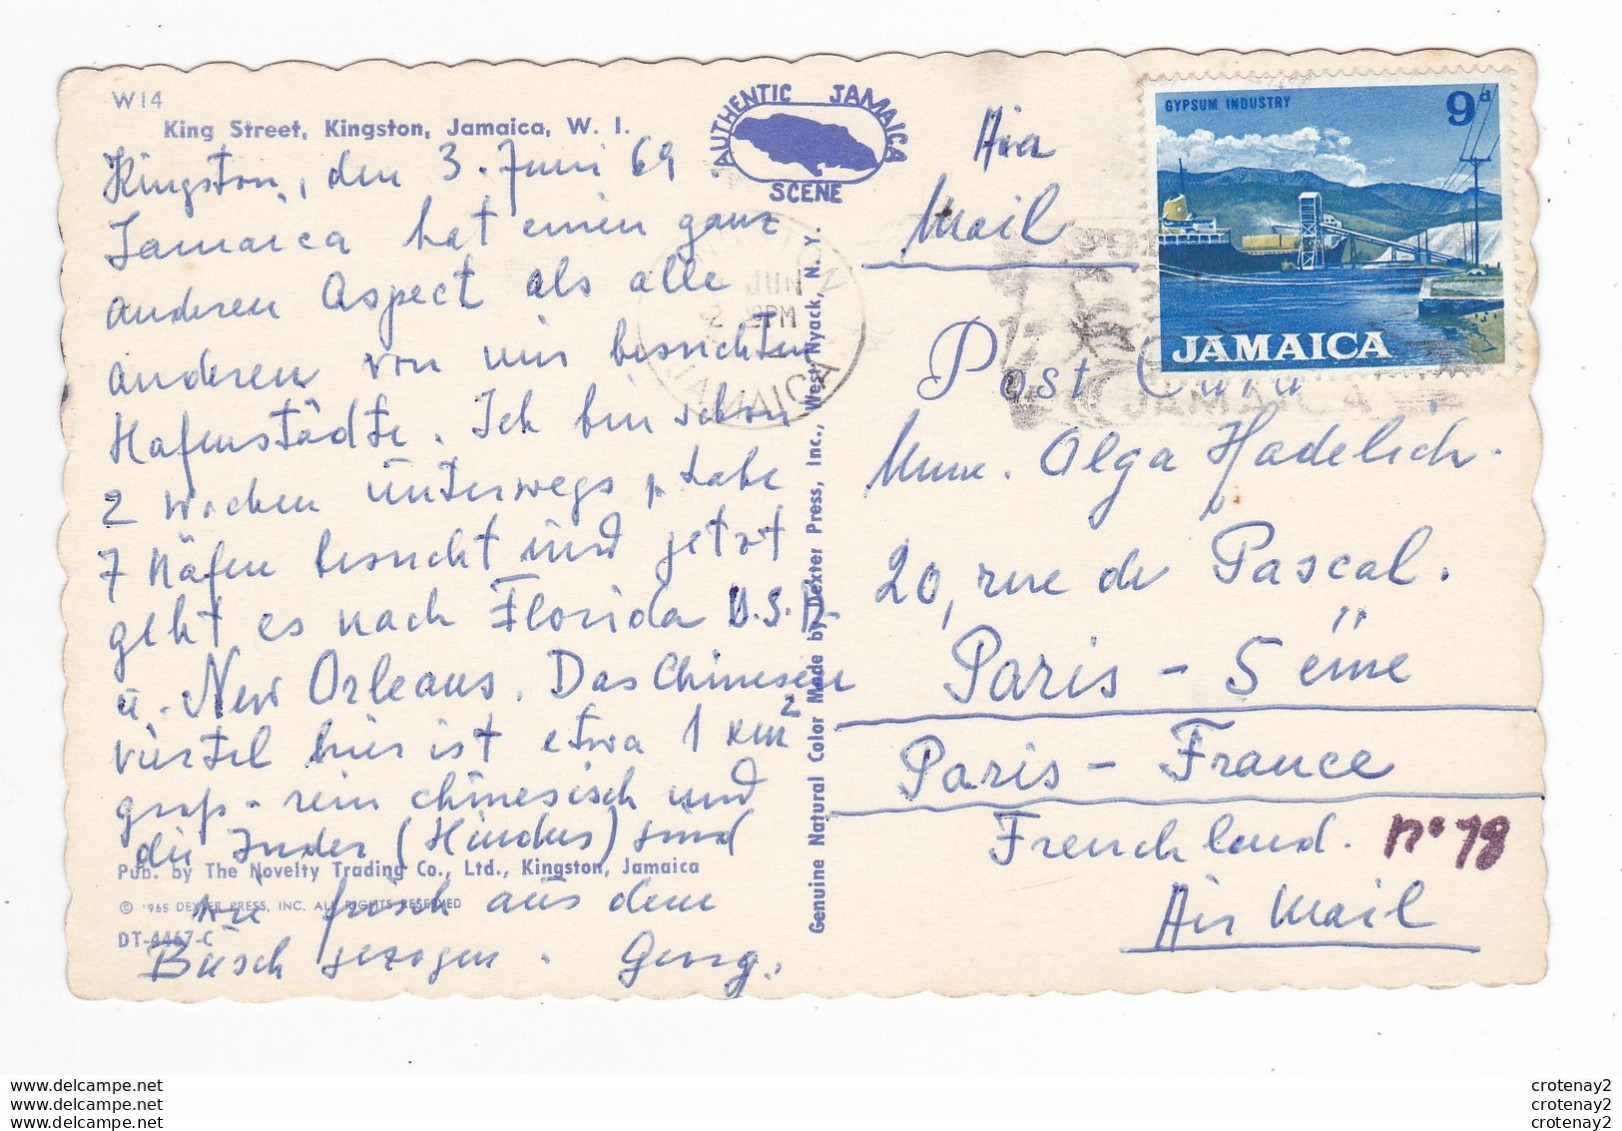 W14
King Street, Kingston, Jamaica, W. I.
AUTHENTIC JAMAICA
SCENE
Kingston, den 3. Juni 69.
Jamaica hat einen ganz
anderen Aspect als alle
anderen von mir besuchten
Hafenstädte. Ich bin schon
2 Wochen unterwegs, habe
7 Häfen besucht und jetzt
geht es nach Florida U.S.A.
u. New Orleans. Das Chinesen
viertel hier ist etwa 1 km²
groß - rein chinesisch und
die Inder (Hindus) sind
Pub. by The Novelty Trading Co., Ltd., Kingston, Jamaica
wie frisch aus dem
© 1965 DEXTER PRESS, INC. ALL RIGHTS RESERVED
DT-4467-C
Busch gezogen. Georg.
Genuine Natural Color Made by Dexter Press, Inc., West Nyack, N. Y.
JUN
2 PM
JAMAICA
Air
Mail
GYPSUM INDUSTRY 9d
JAMAICA
JAMAICA
Post Card
Mme. Olga Hadelich.
20, rue de Pascal.
Paris - 5 ème
Paris - France
Frenchland. n° 78
Air Mail
www.delcampe.net
www.delcampe.net
www.delcampe.net
crotenay2
crotenay2
crotenay2